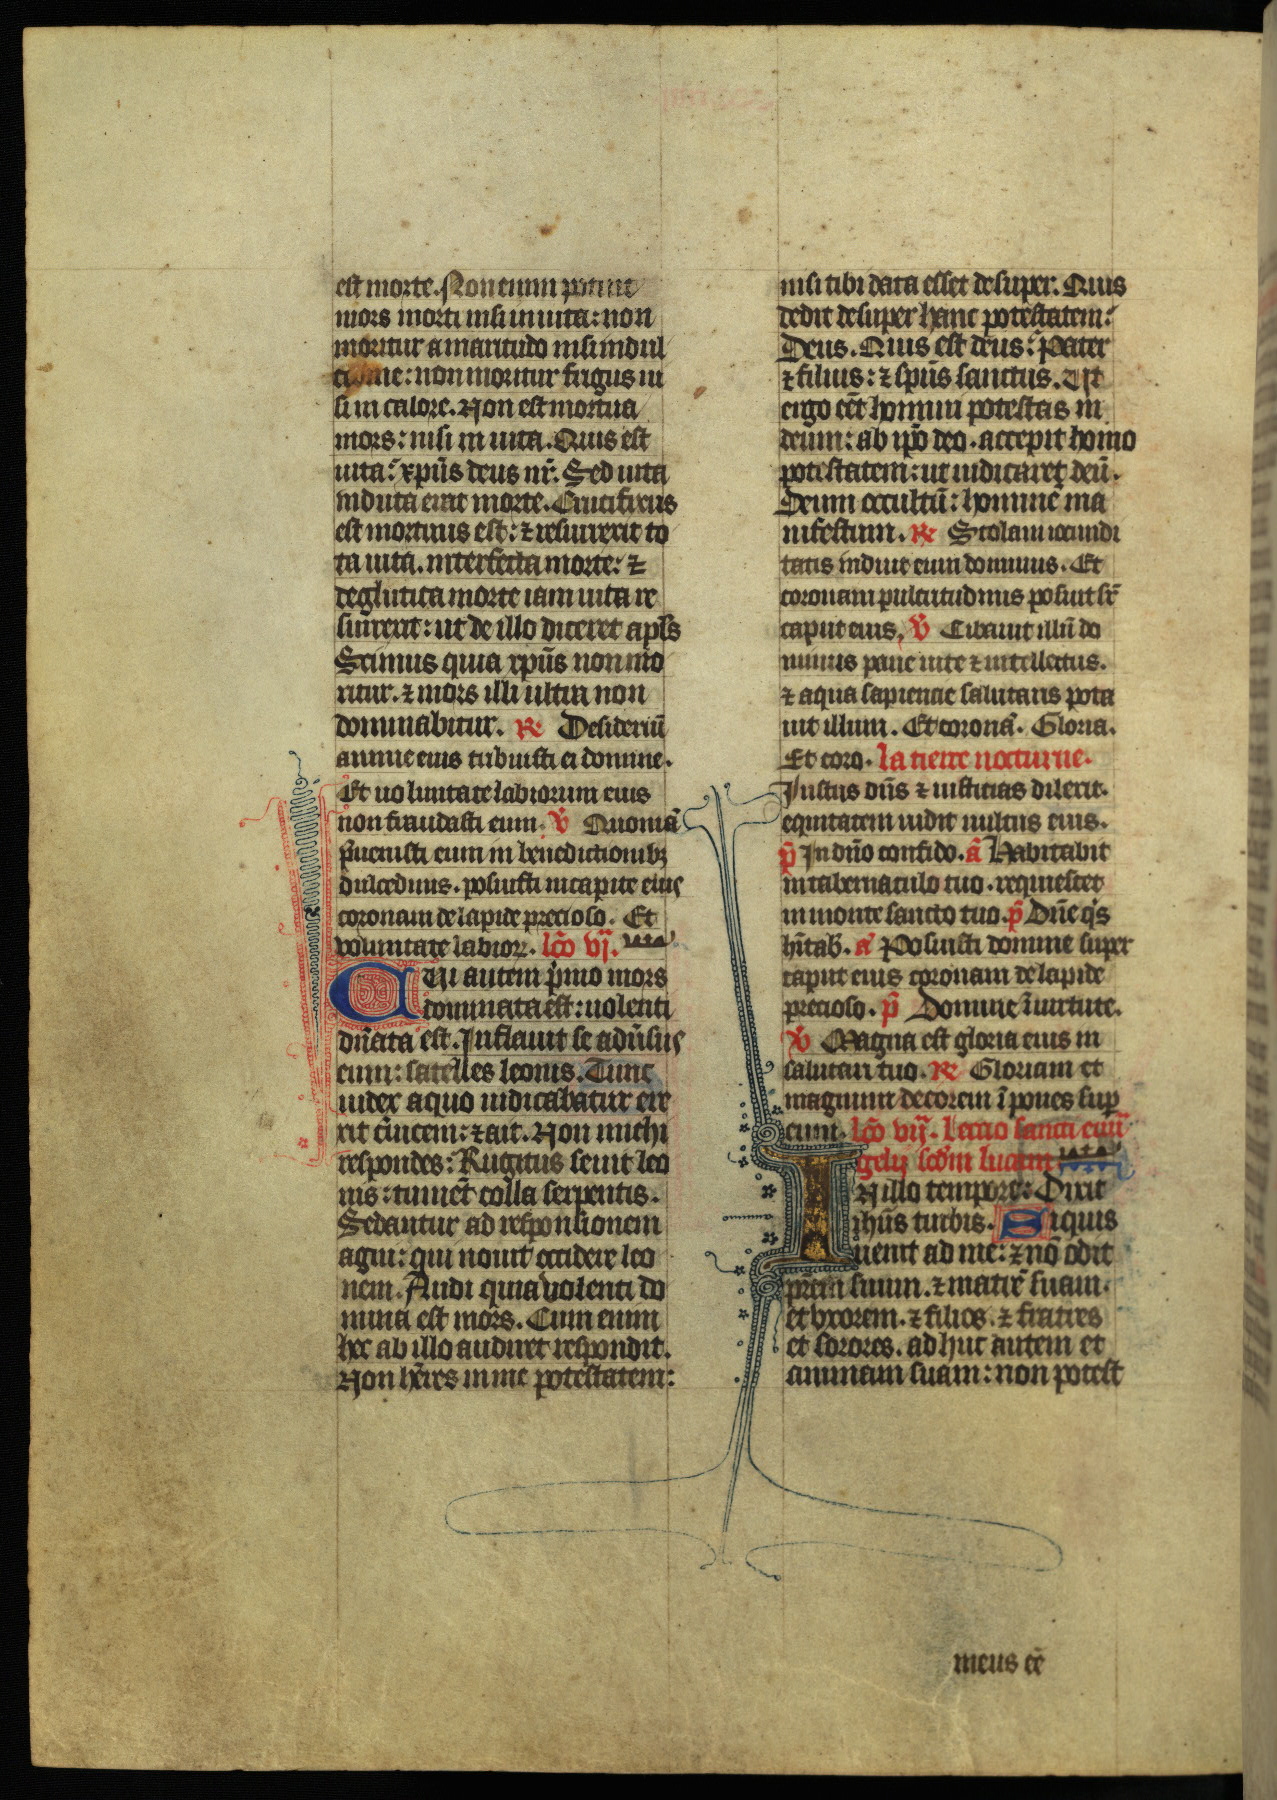 est morte. Non enim potuit
mors mori nisi in uita: non
moritur amaritudo nisi in dul
cedine: non moritur frigus ni
si in calore. Non est mortua
mors: nisi in uita. Quis est
uita? xp̄us deus nr̄. Sed uita
induta erat morte. Crucifixus
est mortuus est: ⁊ resurrexit to
ta uita. interfecta morte: ⁊
deglutita morte iam uita re
surrexit: ut de illo diceret apl̄s
Scimus quia xp̄us non mo
ritur. ⁊ mors illi ultra non
dominabitur. R̄ Desideriū
anime eius tribuisti ei domine.
Et uoluntate labiorum eius
non fraudasti eum. v̄ Quoniā
p̄uenisti eum in benedictionibꝫ
dulcedinis. posuisti in capite eius
coronam de lapide precioso. Et
voluntate labioꝝ. lc̄o vj.
CUi autem p̄mo mors
dominata est: uolenti
dn̄ata est. Inflauit se adūsus
eum: satelles leonis. Tunc
iudex a quo iudicabatur eir
xit c̄uicem: ⁊ ait. Non michi
respondes? Rugitus seuit leo
nis: timet̄ colla serpentis.
Sedantur ad responsionem
agni: qui nouit occidere leo
nem. Audi quia volenti do
mina est mors. Cum enim
hec ab illo audiret respondit.
Non hēres in me potestatem:
nisi tibi data esset desuper. Quis
dedit desuper hanc potestatem?
Deus. Quis est deus? Pater
⁊ filius: ⁊ sp̄us sanctus. Ut
ergo eēt homini potestas in
deum: ab ip̄o deo. accepit homo
potestatem: ut iudicaret deū.
Deum occultū: hominē ma
nifestum. R̄ Stolam iocundi
tatis induit eum dominus. Et
coronam pulcritudinis posuit sr̄
caput eius, v̄ Cibauit illū do
minus pane uite ⁊ intellectus.
⁊ aqua sapiencie salutaris pota
uit illum. Et coronā. Gloria.
Et coro. la tierce nocturne.
Iustus dn̄s ⁊ iusticias dilexit.
equitatem uidit uultus eius.
p̄ In dn̄o confido. ā Habitabit
in tabernaculo tuo. requiescet
in monte sancto tuo. p̄ Dn̄e q̇s
hīta. ā Posuisti domine super
caput eius coronam de lapide
precioso. p̄ Domine ī uirtute.
v̄ Magna est gloria eius in
salutari tuo. R̄ Gloriam et
magnum decorem īpones sup
eum. lc̄o vij. Lectio sancti euu̅
gelij scd̄m lucam
IN illo tempore: Dixit
ihūs turbis. Siquis
uenit ad me: ⁊ nō odit
pr̄em suum. ⁊ matrē suam.
et vxorem. ⁊ filios. ⁊ fratres
et sorores. adhuc autem et
animam suam: non potest
meus eē